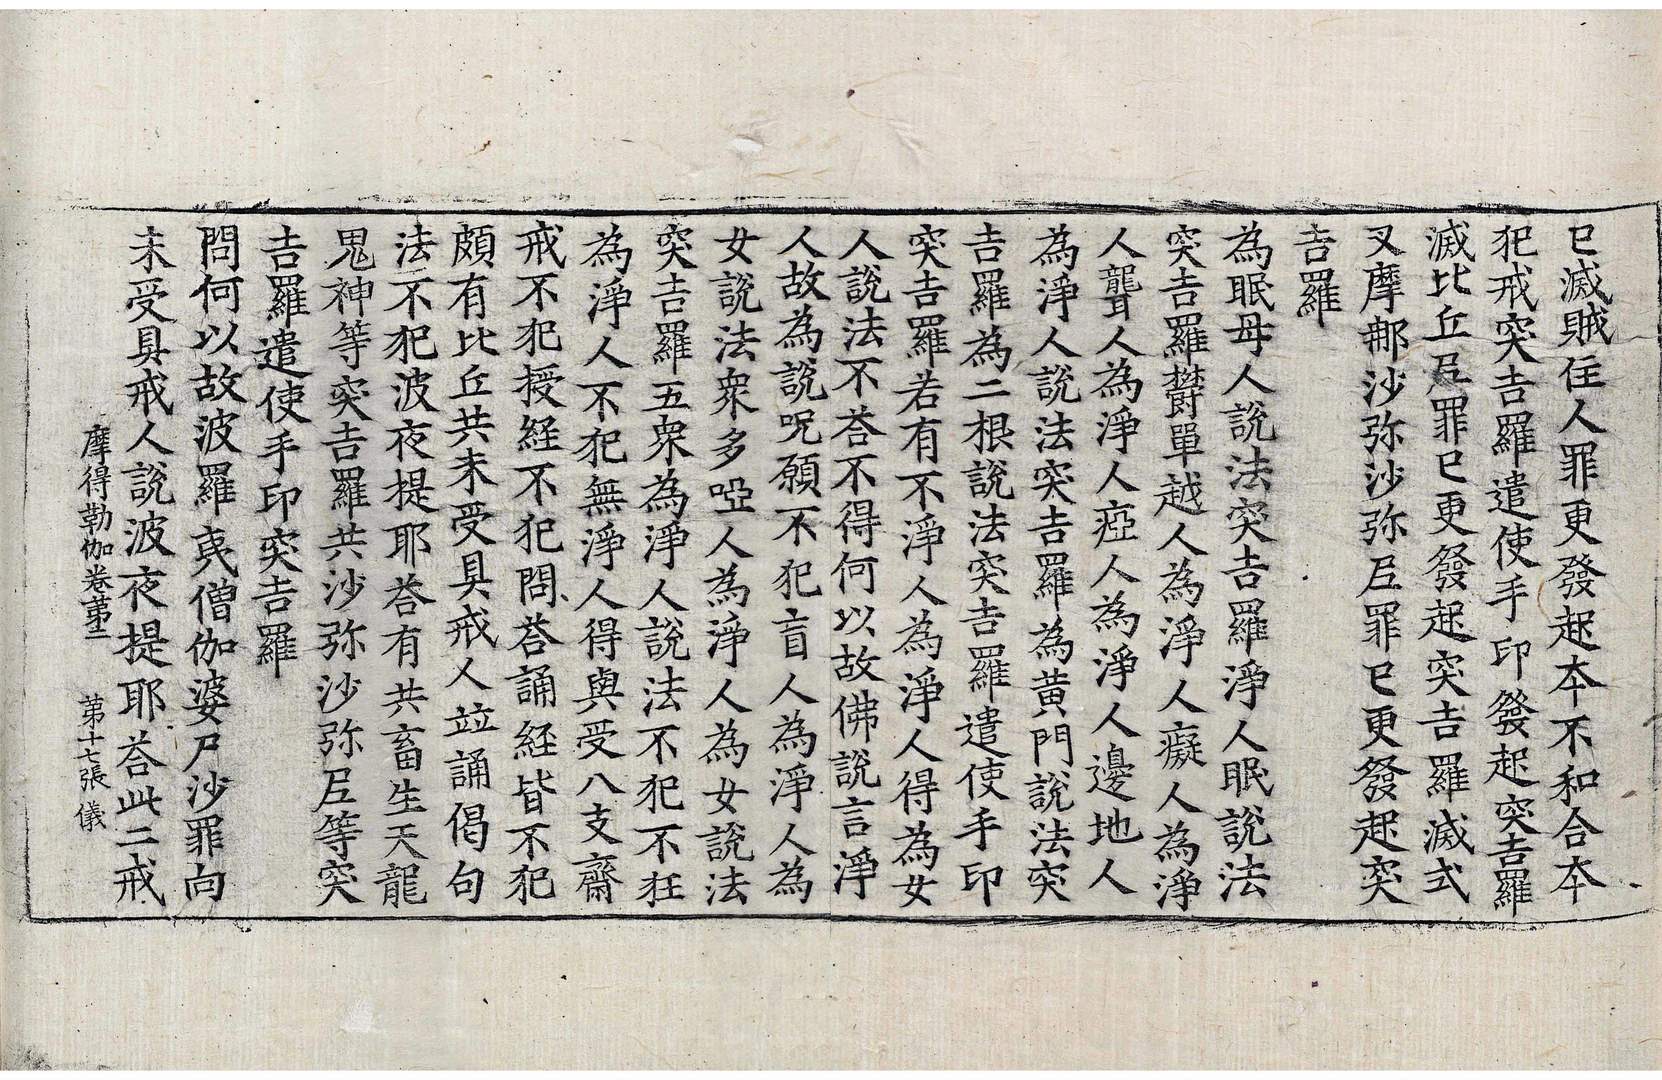 已滅賊住人罪更發起本不和合本
犯戒突吉羅遣使手印發起突吉羅
滅比丘尼罪已更發起突吉羅滅式
叉摩那沙弥沙弥尼罪已更發起突
吉羅
為眠母人說法突吉羅淨人眠說法
突吉羅欝單越人為淨人癡人為淨
人聾人為淨人瘂人為淨人邊地人
為淨人說法突吉羅為黄門說法突
吉羅為二根說法突吉羅遣使手印
突吉羅若有不淨人為淨人得為女
人說法不荅不得何以故佛說言淨
人故為說呪願不犯盲人為淨人為
女說法衆多啞人為淨人為女說法
突吉羅五衆為淨人說法不犯不狂
為淨人不犯無淨人得與受八支齋
戒不犯授経不犯問荅誦経皆不犯
頗有比丘共未受具戒人竝誦偈句
法不犯波夜提耶荅有共畜生天龍
鬼神等突吉羅共沙弥沙弥尼等突
吉羅遣使手印突吉羅
問何以故波羅夷僧伽婆尸沙罪向
未受具戒人說波夜提耶荅此二戒
摩得勒伽卷第二　第十七張　儀